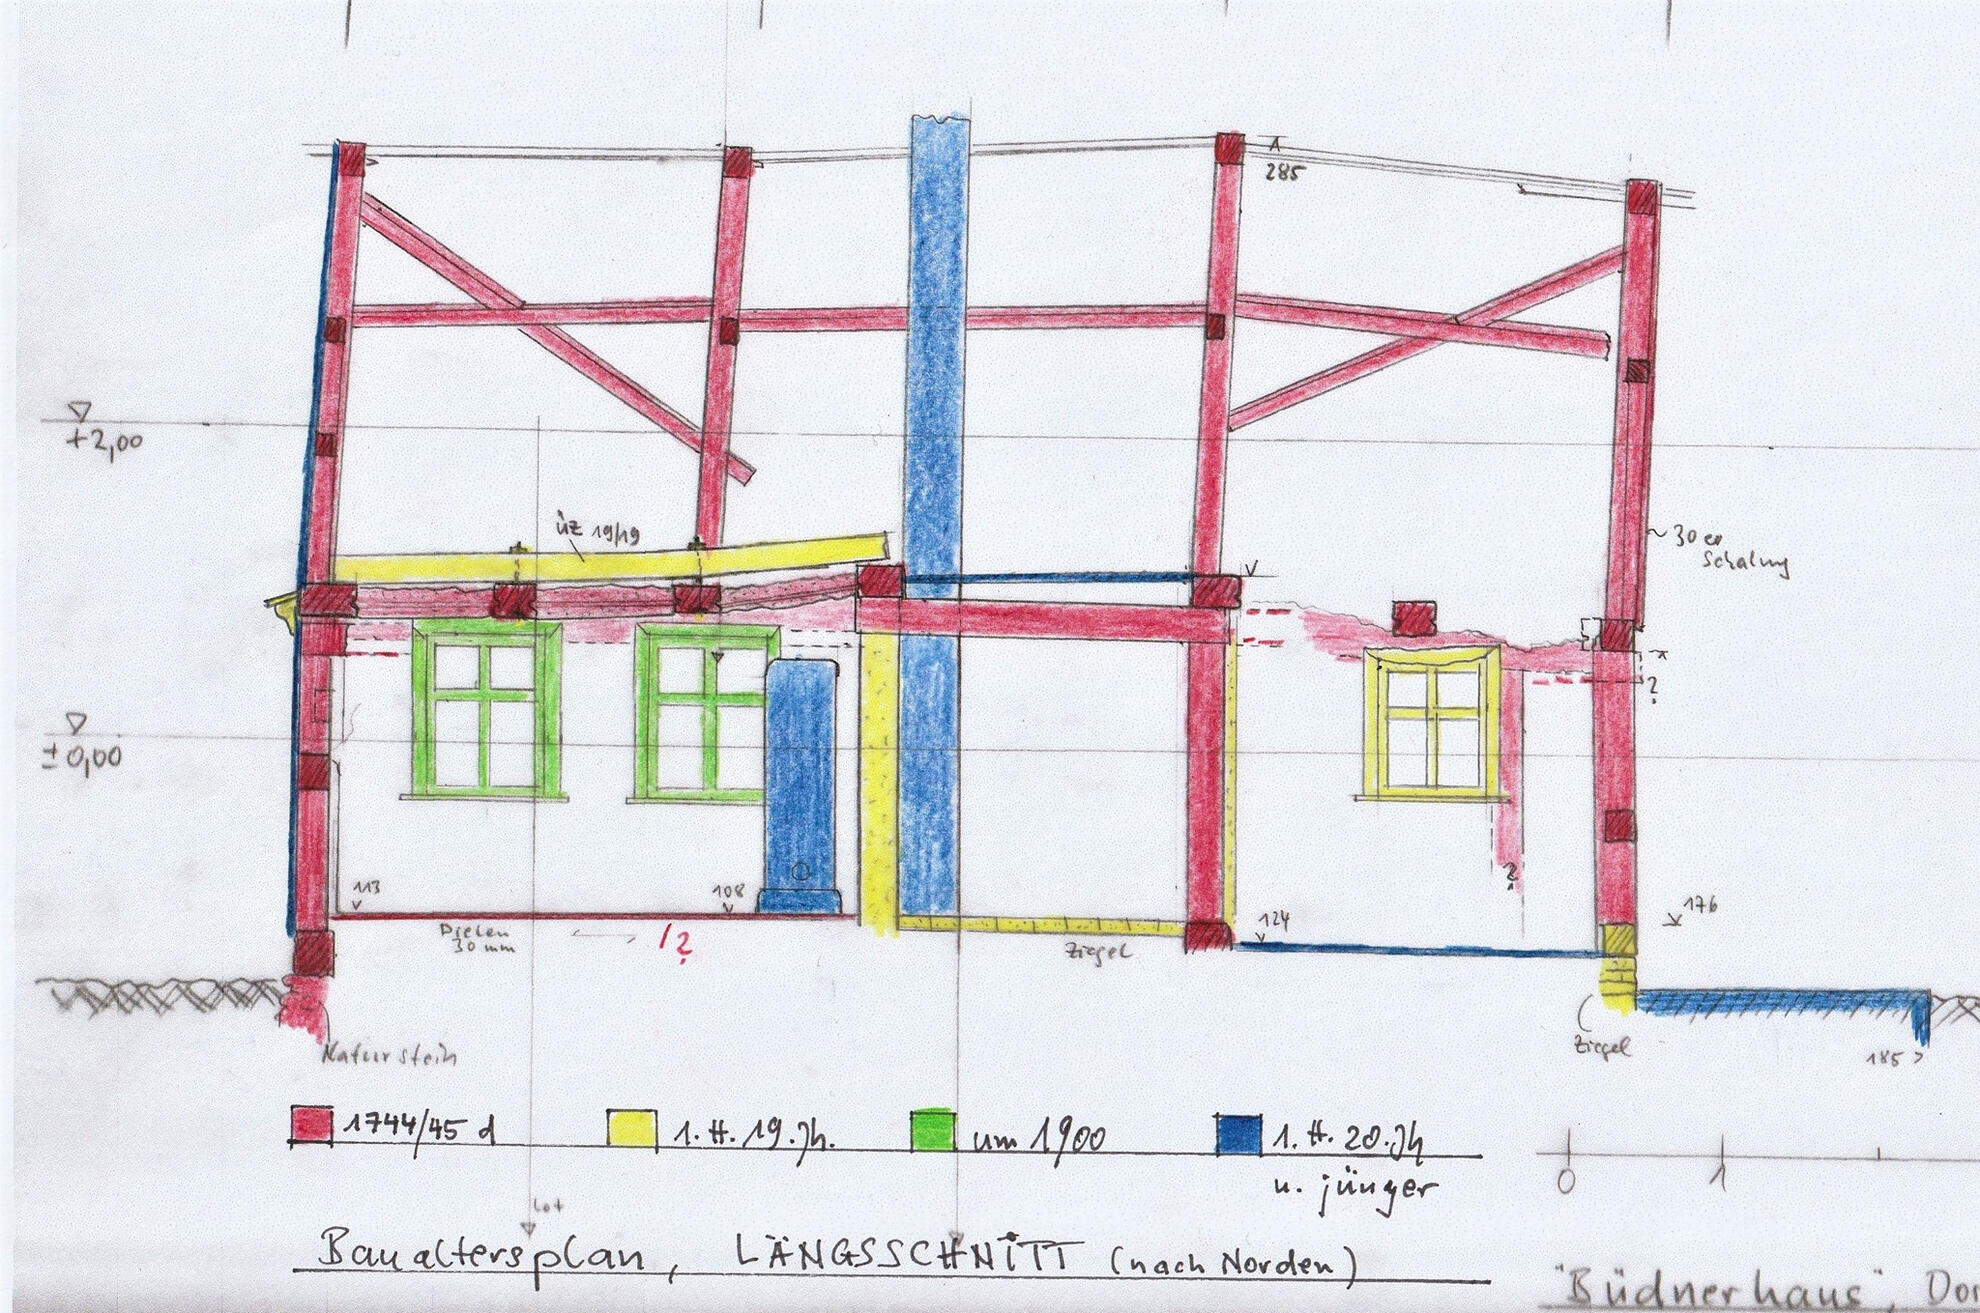 285
+2,00
üz 19/19
~30er
Schalung
±0,00
?
?
113
108
176
124
Dielen
30 mm
?
Ziegel
Naturstein
Ziegel
185 >
1744/45 d
1. H. 19. Jh.
um 1900
1. H. 20. Jh
u. jünger
0
1
Lot
Baualtersplan, LÄNGSSCHNITT (nach Norden)
"Büdnerhaus",